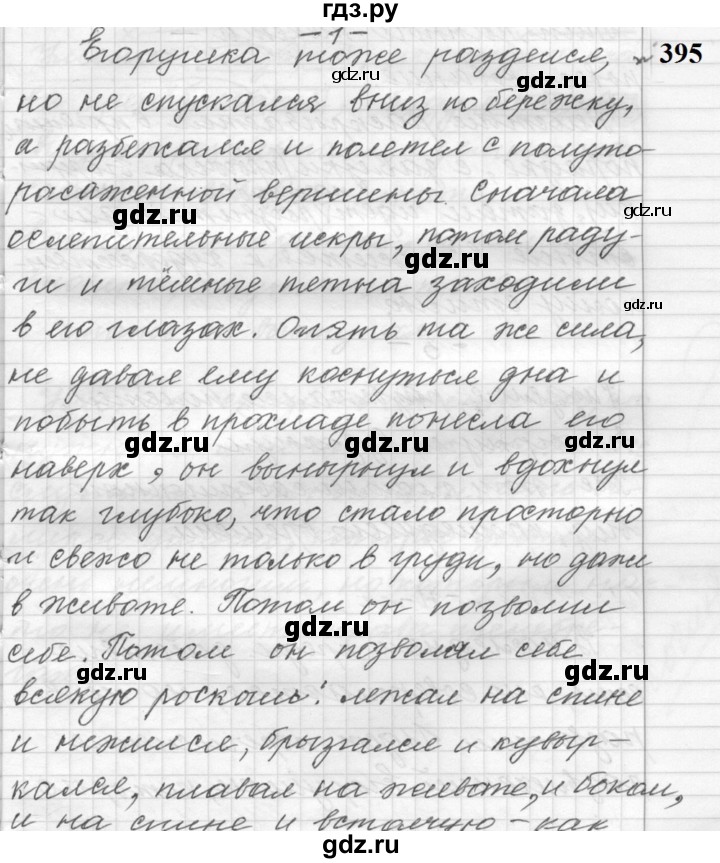 гдз.ру
-1-
Егорушка тоже разделся, № 395
gdz.ru
но не спускался вниз по бережку,
а разбежался и полетел с полуто-
расаженной вершины. Сначала
gdz.ru gdz.ru
ослепительные искры, потом раду-
gdz.ru
ги и тёмные пятна заходили
gdz.ru
в его глазах. Опять та же сила,
не давая ему коснуться дна и
побыть в прохладе понесла его
gdz.ru gdz.ru gdz.ru
наверх, он вынырнул и вдохнул
так глубоко, что стало просторно
и свежо не только в груди, но даже
в животе. Потом он позволил
gdz.ru
себе. Потом он позволял себе
gdz.ru gdz.ru
всякую роскошь: лежал на спине
и нежился, брызгался и кувыр-
кался, плавал на животе, и боком,
и на спине и встоячую - как
gdz.ru